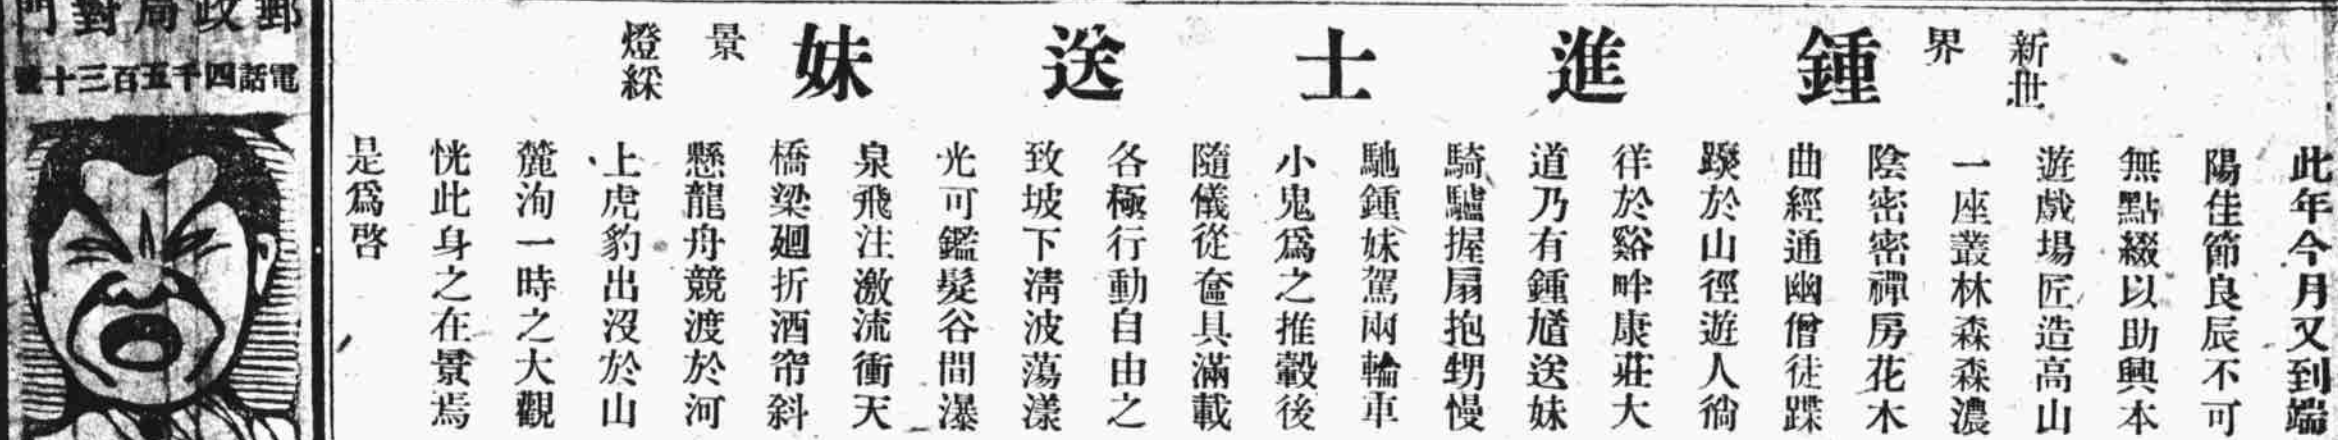 新世界
鍾進士送妹
景
燈綵
此年今月又到端
陽佳節良辰不可
無點綴以助興本
遊戲場匠造高山
一座叢林森森濃
陰密密禪房花木
曲經通幽僧徒蹀
躞於山徑遊人徜
徉於谿畔康莊大
道乃有鍾馗送妹
騎驢握扇抱甥慢
馳鍾妹駕兩輪車
小鬼爲之推轂後
隨儀從奩具滿載
各極行動自由之
致坡下淸波蕩漾
光可鑑髮谷間瀑
泉飛注激流衝天
橋梁廻折酒帘斜
懸龍舟競渡於河
上虎豹出沒於山
麓洵一時之大觀
恍此身之在景焉
是爲啓
郵政局對門
電話四千五百三十號